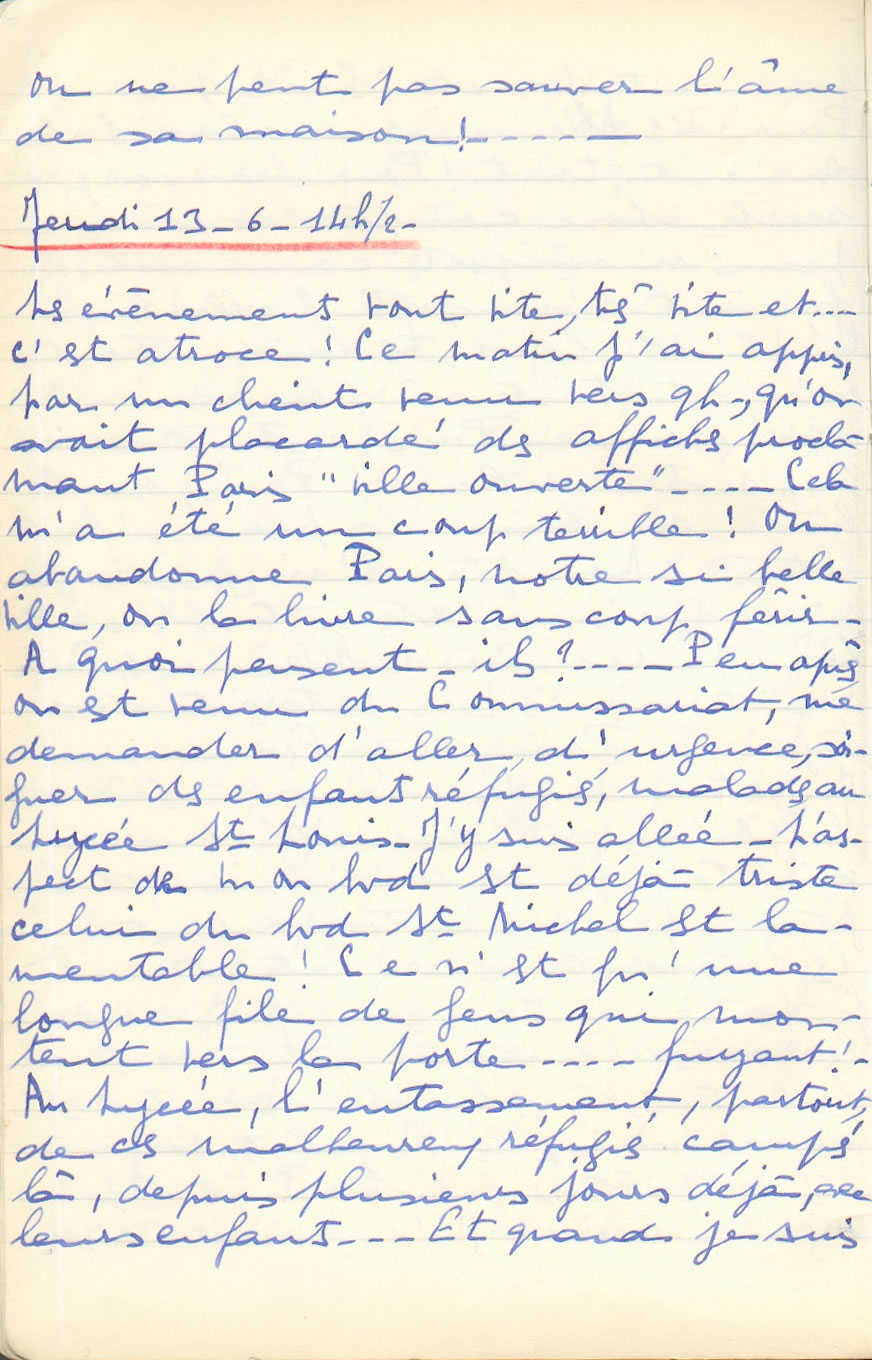 On ne peut pas sauver l'âme
de sa maison!-----
Jeudi 13-6-14h/2-
Les évènements vont vite, très vite et...
c'est atroce! Ce matin j'ai appris,
par un client venu vers 9h-, qu'on
avait placardé des affiches procla-
mant Paris "ville ouverte"---- Cela
m'a été un coup terrible! On
abandonne Paris, notre si belle
ville, on la livre sans coup férir-
A quoi pensent-ils?---- Peu après
on est venu du Commissariat, me
demander d'aller, d'urgence, soi-
gner des enfants réfugiés, malades au
Lycée St Louis- J'y suis allée- L'as-
pect de mon bvd est déjà triste
celui du bvd St Michel est la-
mentable! Ce n'est qu'une
longue file de gens qui mon-
tent vers la porte---- fuyant!-
Au Lycée, l'entassement, partout,
de ces malheureux réfugiés campés
là, depuis plusieurs jours déjà, avec
leurs enfants--- Et quand je suis